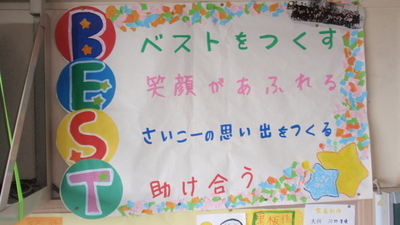 BEST
ベストをつくす
笑顔があふれる
さいこーの思い出をつくる
助け合う